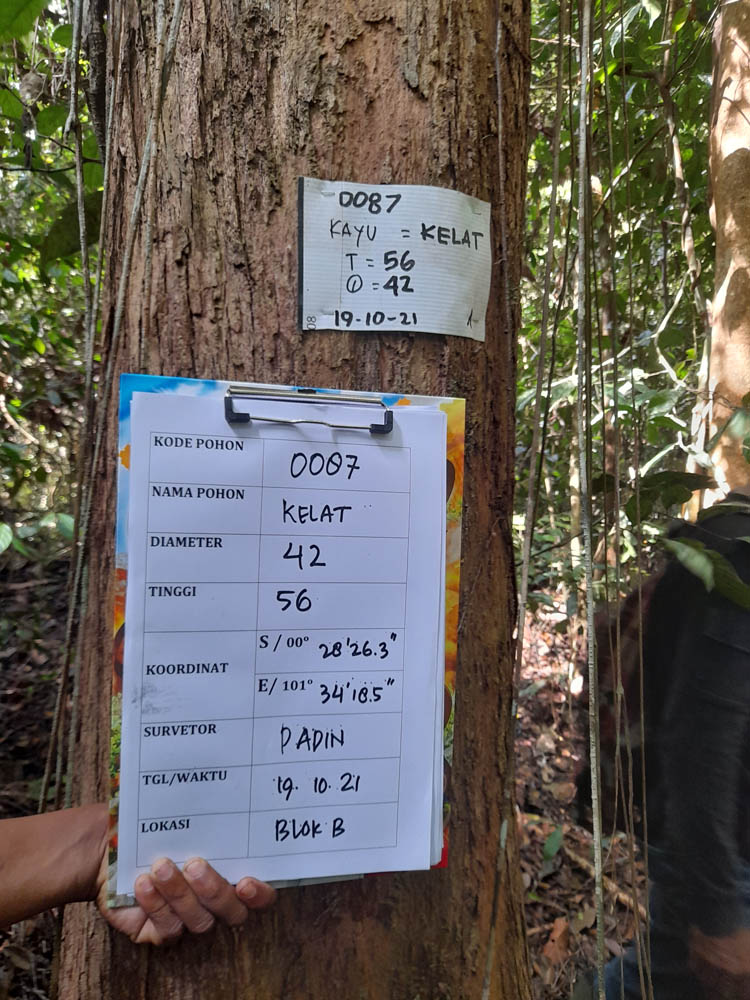 0087
KAYU = KELAT
T = 56
Ⓘ = 42
19-10-21
KODE POHON 0087
NAMA POHON KELAT
DIAMETER 42
TINGGI 56
KOORDINAT
S / 00° 28'26.3"
E/ 101° 34'18.5"
SURVETOR PADIN
TGL/WAKTU 19. 10. 21
LOKASI BLOK B